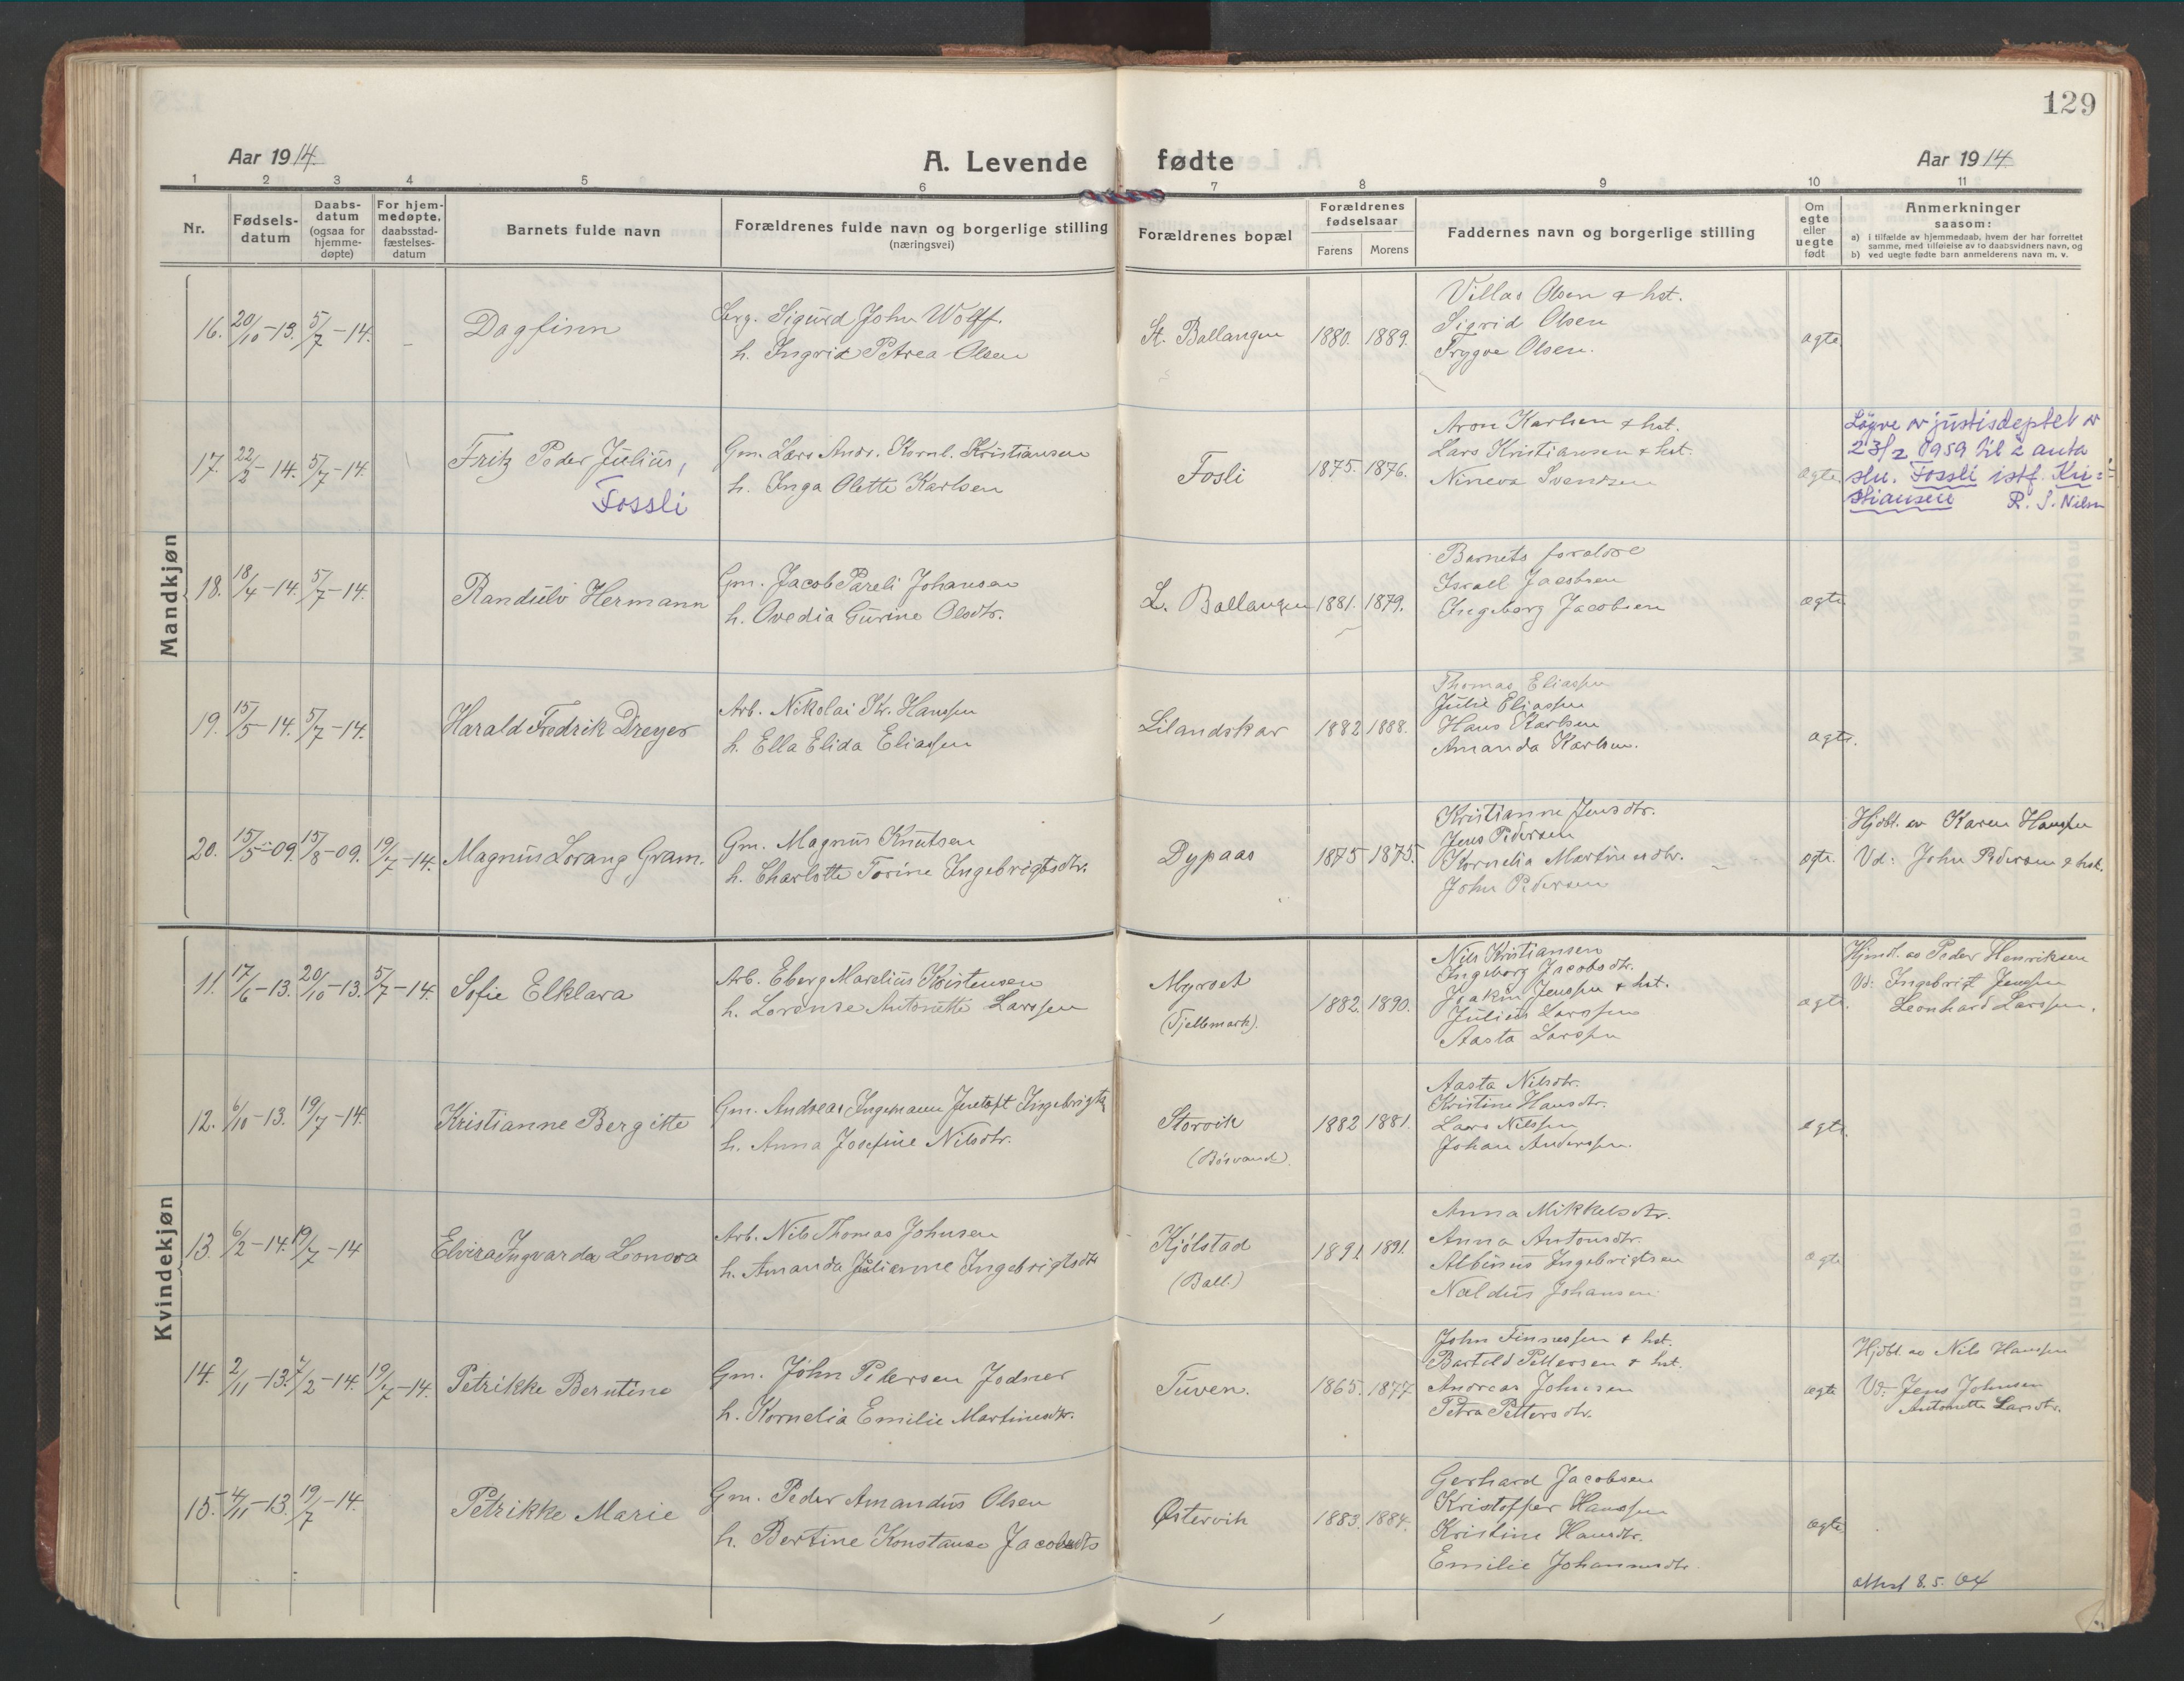 129
Aar 1914.
A. Levende fødte
Aar 1914
1 2 3 4 5 6 7 8 9 10 11
Nr.
Fødsels-
datum
Daabs-
datum
(ogsaa for
hjemme-
døpte)
For hjem-
medøpte,
daabsstad-
fæstelses-
datum
Barnets fulde navn
Forældrenes fulde navn og borgerlige stilling
(næringsvei)
Forældrenes bopæl
Forældrenes
fødselsaar
Farens Morens
Faddernes navn og borgerlige stilling
Om
egte
eller
uegte
født
Anmerkninger
saasom:
a) i tilfælde av hjemmedaab, hvem der har forrettet
samme, med tilføielse av to daabsvidners navn, og
b) ved uegte fødte barn anmelderens navn m. v.
Mandkjøn
16. 20/10-13. 5/7-14. - Dagfinn
Sigurd John Wolff.
h. Ingrid Petrea Olsen
St. Ballangen 1880. 1889.
Villas Olsen & hst.
Sigrid Olsen
Trygve Olsen.
ægte
17. 22/2-14. 5/7-14. Fritz Peder Julius,
Fossli
Gm. Lars Andr. Kornl. Kristiansen
h. Inga Olette Karlsen
Fosli 1875. 1876.
Aron Karlsen & hst.
Lars Kristiansen & hst.
Nineva Svendsen
ægte
Løyve av justisdeptet av
23/2 1959 til å anta
sln. Fossli istf. Kri=
stiansen R. S. Nilsen
18. 18/4-14. 5/7-14. Randulv Hermann
Gm. Jacob Pareli Johansen
h. Ovedia Gurine Olsdtr.
L. Ballangen 1881. 1879.
Barnets forældre
Israel Jacobsen
Ingeborg Jacobsen
ægte
19. 15/5-14. 5/7-14. Harald Fredrik Dreyer
Arb. Nikolai Kr. Hanssen
h. Ella Elida Eliassen
Lilandskar 1882 1888.
Thomas Eliassen
Julie Eliassen
Hans Karlsen
Amanda Karlsen.
ægte.
20. 15/5-09. 15/8-09. 19/7-14. Magnus Lorang Gram.
Gm. Magnus Knutsen
h. Charlotte Torine Ingebrigtsdtr.
Dypaas 1875 1875.
Kristianne Jensdtr.
Jens Pedersen
Kornelia Martinesdtr.
John Pedersen
ægte.
Hjdbt. av Karen Hanssen
Vd: John Pedersen & hst.
Kvindekjøn
11. 17/6-13. 20/10-13. 5/7-14. Sofie Elklara
Arb. Eberg Marelius Kristensen
h. Lorense Antonette Larssen
Myrset
(Fjellemark). 1882. 1890.
Nils Kristiansen
Ingeborg Jacobsdtr.
Joakin Jenssen & hst.
Julius Larssen
Aasta Larssen
ægte.
Hjmd. av Peder Henriksen
Vd: Ingebrigt Jenssen
Leonhard Larssen.
12. 6/10-13. 19/7-14. Kristianne Bergitte
Gm. Andreas Ingemann Jentoft Ingebrigts
h. Anna Josefine Nilsdtr.
Storvik
(Børsvand). 1882 1881.
Aasta Nilsdtr.
Kristine Hansdtr.
Lars Nilssen
Johan Anderssen.
ægte.
13. 6/2-14. 19/7-14 Elvira Ingvarda Lonova
Arb. Nils Thomas Johnsen
h. Amanda Julianne Ingebrigtsdtr
Kjølstad
(Ball.) 1891 1891.
Anna Mikkelsdtr.
Anna Antonsdtr.
Albinus Ingebrigtsen
Naldus Johansen
ægte
14. 2/11-13. 7/2-14. 19/7-14. Petrikke Berntine
Gm. John Pedersen Jodner
h. Kornelia Emilie Martinesdtr.
Tuven. 1865. 1877
John Finnessen & hst.
Bartold Pettersen & hst.
Andreas Johnsen
Petra Pettersdtr.
ægte
Hjdbt. av Nils Hanssen
Vd: Jens Johnsen
Antonette Larsdtr.
15. 4/11-13. 19/7-14. Petrikke Marie
Gm. Peder Amandus Olsen
h. Bertine Konstanse Jacobsdtr
Østervik 1883. 1884.
Gerhard Jacobsen
Kristoffer Hanssen
Kristine Hansdtr.
Emilie Johannesdtr.
ægte
attest 8.5.64